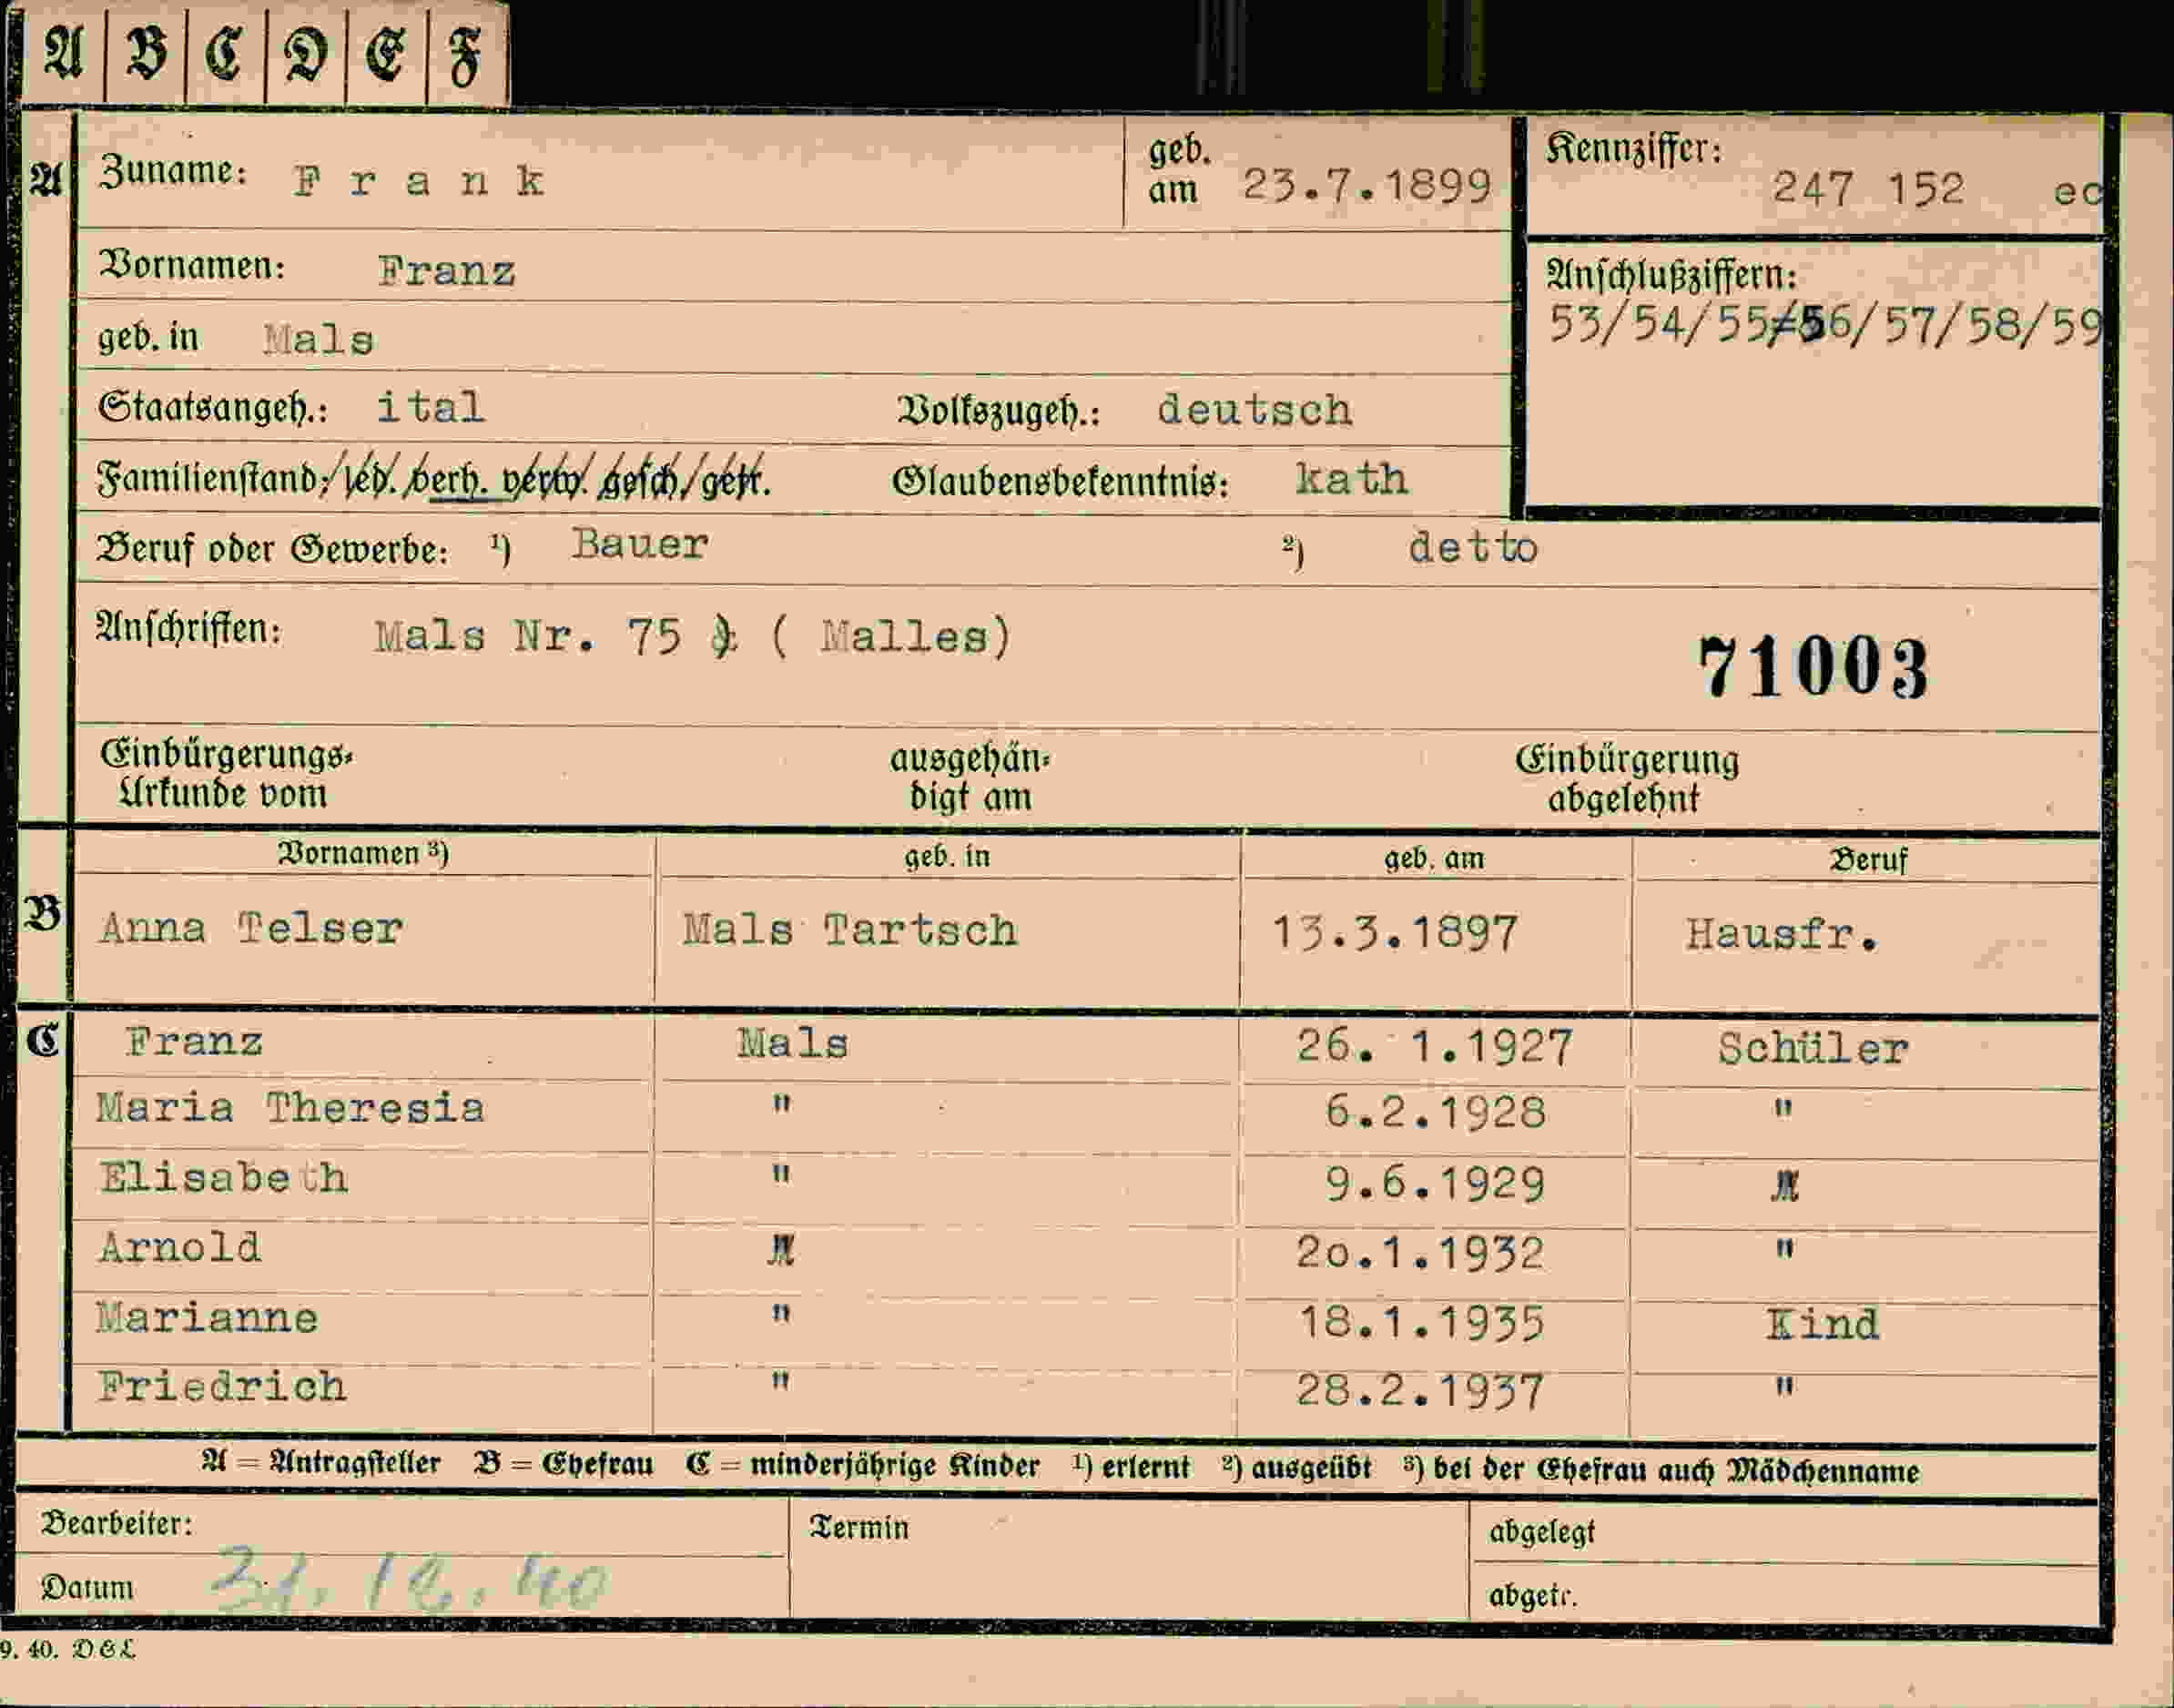 A B C D E F
A Zuname: Frank geb. am 23.7.1899 Kennziffer: 247 152 ec
Vornamen: Franz
Anschlußziffern:
53/54/55/56/57/58/59
geb. in Mals
Staatsangeh.: ital Volkszugeh.: deutsch
Familienstand: led. verh. verw. gesch. getr. Glaubensbekenntnis: kath
Beruf oder Gewerbe: ¹) Bauer ²) detto
Anschriften: Mals Nr. 75 ( Malles)
71003
Einbürgerungs- ausgehän- Einbürgerung
Urkunde vom digt am abgelehnt
Vornamen ³) geb. in geb. am Beruf
B Anna Telser Mals Tartsch 13.3.1897 Hausfr.
C Franz Mals 26. 1.1927 Schüler
Maria Theresia " 6.2.1928 "
Elisabeth " 9.6.1929 "
Arnold " 2o.1.1932 "
Marianne " 18.1.1935 Kind
Friedrich " 28.2.1937 "
A = Antragsteller B = Ehefrau C = minderjährige Kinder ¹) erlernt ²) ausgeübt ³) bei der Ehefrau auch Mädchenname
Bearbeiter: Termin abgelegt
Datum 31.12.40 abgetr.
9. 40. DGL